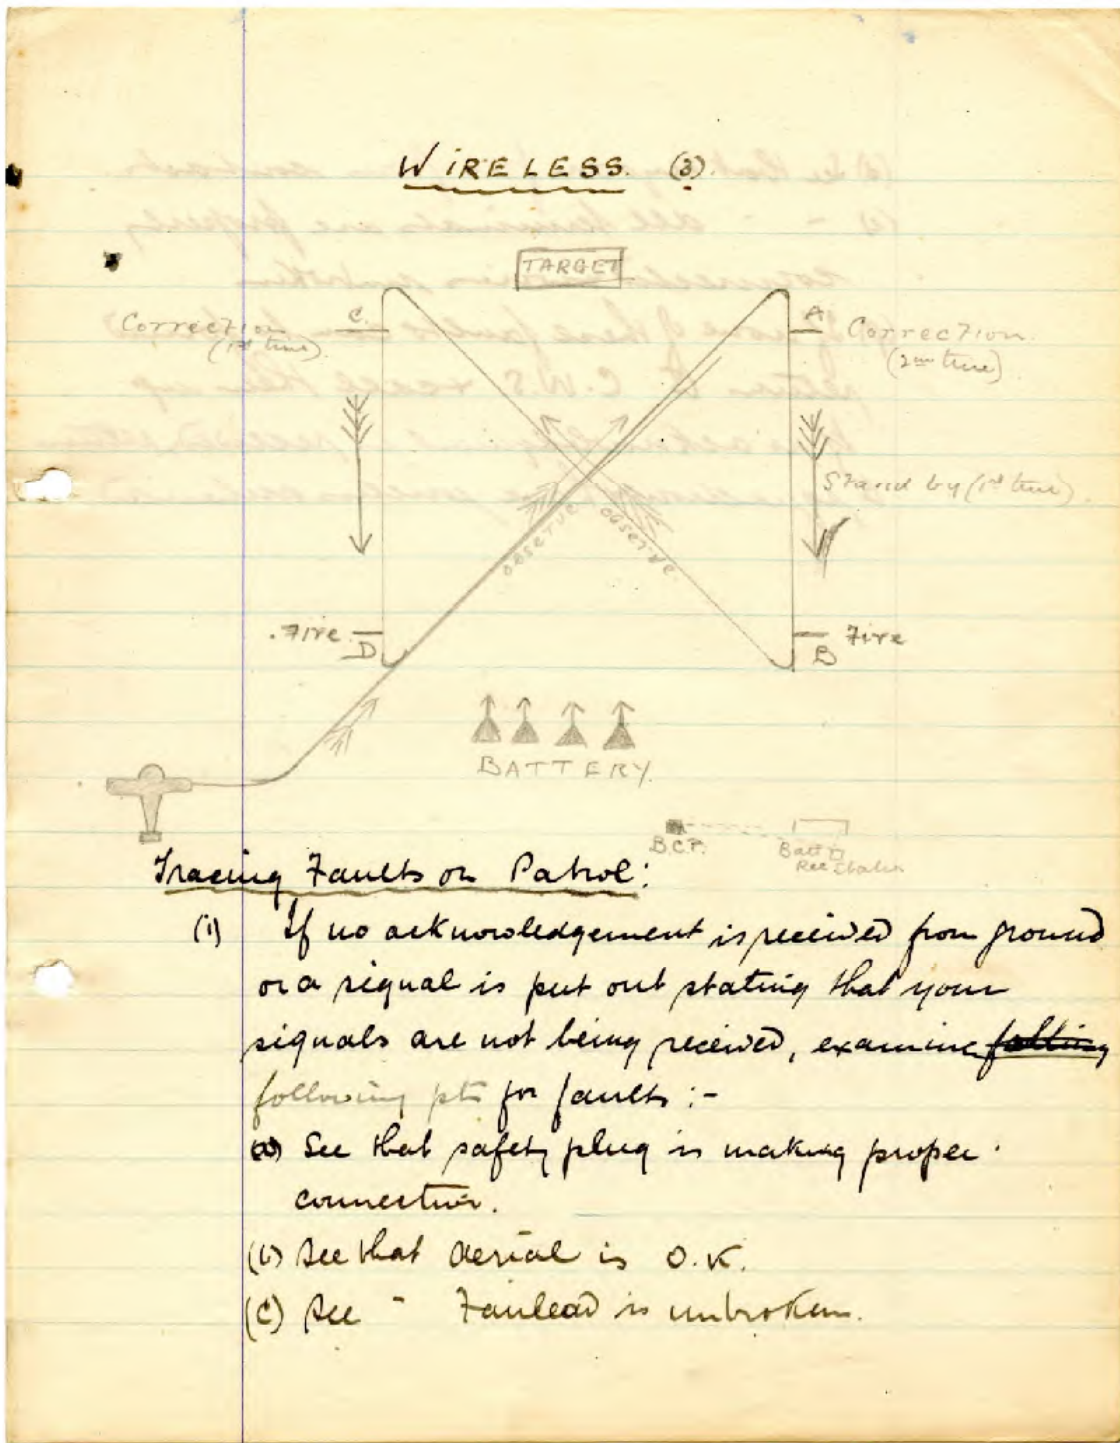 WIRELESS. (3).
TARGET
C.
A
Correction
(1st time).
Correction
(2nd time)
Stand by (1st time).
observe
observe.
Fire
D
Fire
B
BATTERY.
B.C.P.
Batty
Rec Station
Tracing Faults on Patrol:
(i) If no acknowledgement is received from ground
or a signal is put out stating that your
signals are not being received, examine
following pts for faults :-
(a) See that safety plug is making proper
connection.
(b) See that aerial is O.K.
(c) See " Fairlead is unbroken.